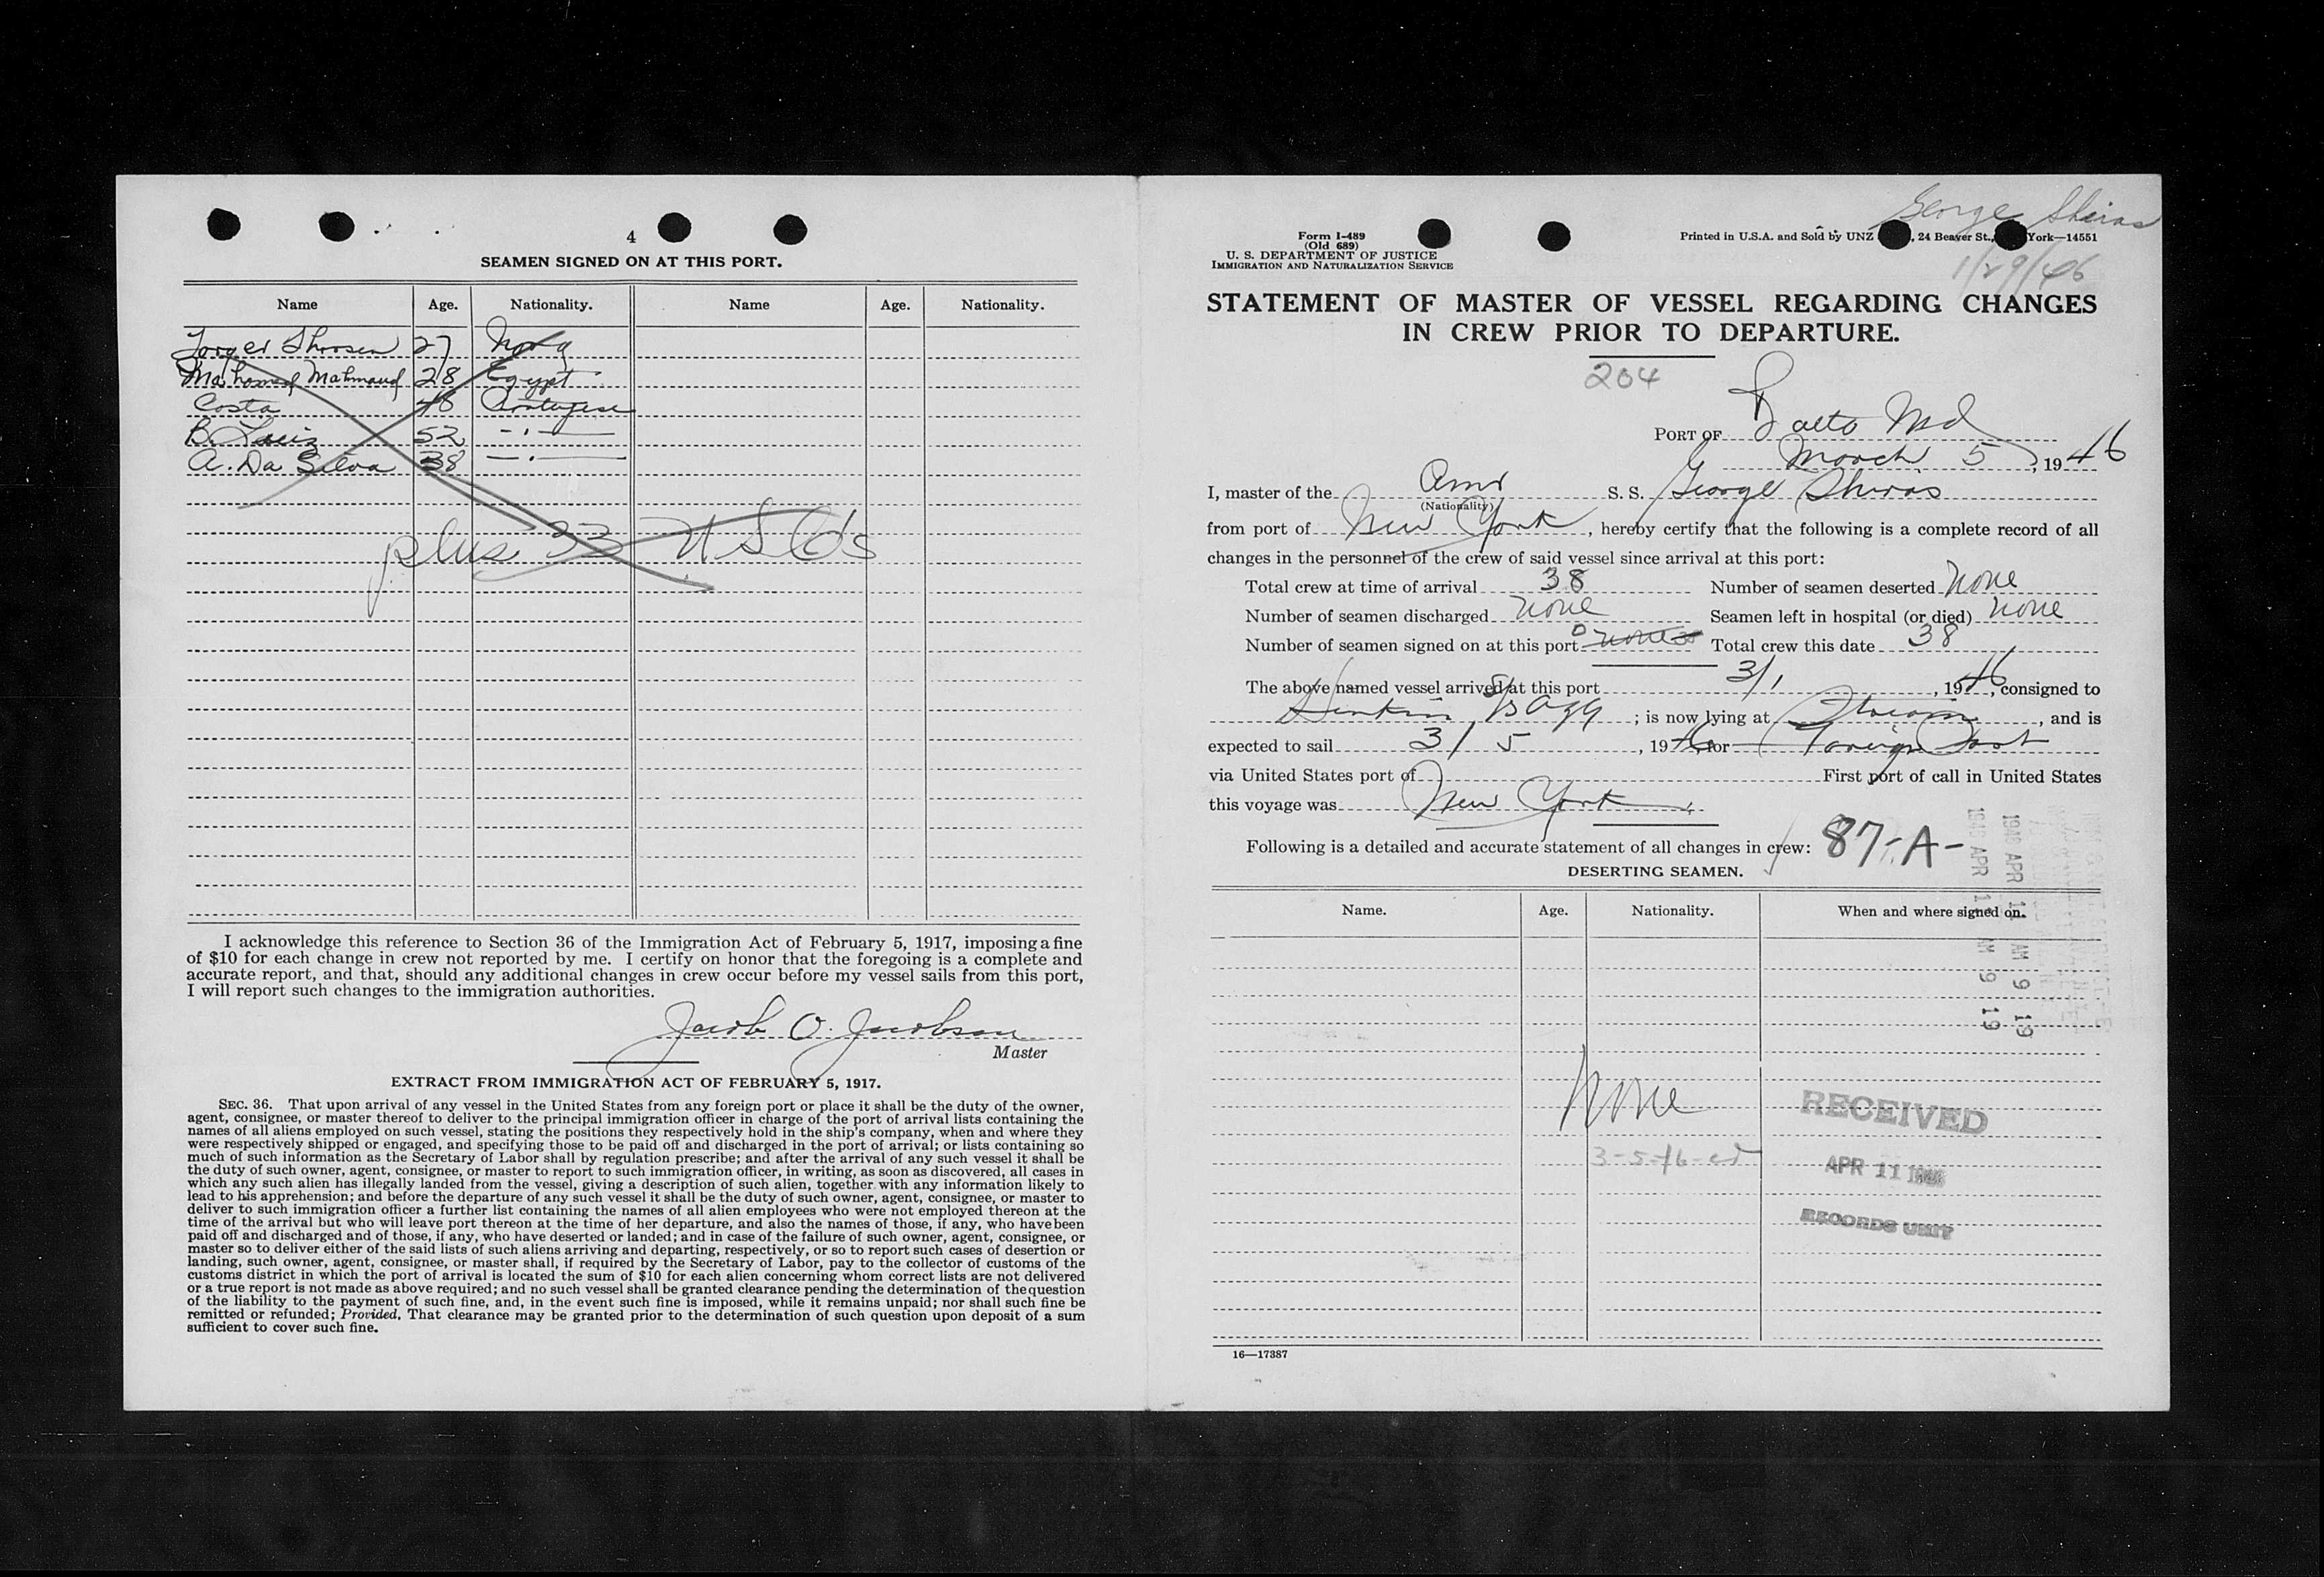 4
SEAMEN SIGNED ON AT THIS PORT.
Name Age. Nationality. Name Age. Nationality.
27 Norg
Mahomed Mahmaud 28 Egypt
Costa 48 Portugese
B. Luiz 52 - . -
A. Da Silva 38 - . -
plus 33 US Cds
I acknowledge this reference to Section 36 of the Immigration Act of February 5, 1917, imposing a fine
of $10 for each change in crew not reported by me. I certify on honor that the foregoing is a complete and
accurate report, and that, should any additional changes in crew occur before my vessel sails from this port,
I will report such changes to the immigration authorities.
Jacob O. Jacobson
Master
EXTRACT FROM IMMIGRATION ACT OF FEBRUARY 5, 1917.
SEC. 36. That upon arrival of any vessel in the United States from any foreign port or place it shall be the duty of the owner,
agent, consignee, or master thereof to deliver to the principal immigration officer in charge of the port of arrival lists containing the
names of all aliens employed on such vessel, stating the positions they respectively hold in the ship's company, when and where they
were respectively shipped or engaged, and specifying those to be paid off and discharged in the port of arrival; or lists containing so
much of such information as the Secretary of Labor shall by regulation prescribe; and after the arrival of any such vessel it shall be
the duty of such owner, agent, consignee, or master to report to such immigration officer, in writing, as soon as discovered, all cases in
which any such alien has illegally landed from the vessel, giving a description of such alien, together with any information likely to
lead to his apprehension; and before the departure of any such vessel it shall be the duty of such owner, agent, consignee, or master to
deliver to such immigration officer a further list containing the names of all alien employees who were not employed thereon at the
time of the arrival but who will leave port thereon at the time of her departure, and also the names of those, if any, who have been
paid off and discharged and of those, if any, who have deserted or landed; and in case of the failure of such owner, agent, consignee, or
master so to deliver either of the said lists of such aliens arriving and departing, respectively, or so to report such cases of desertion or
landing, such owner, agent, consignee, or master shall, if required by the Secretary of Labor, pay to the collector of customs of the
customs district in which the port of arrival is located the sum of $10 for each alien concerning whom correct lists are not delivered
or a true report is not made as above required; and no such vessel shall be granted clearance pending the determination of the question
of the liability to the payment of such fine, and, in the event such fine is imposed, while it remains unpaid; nor shall such fine be
remitted or refunded; Provided, That clearance may be granted prior to the determination of such question upon deposit of a sum
sufficient to cover such fine.
George Shiras
1/29/46
Form I-489
(Old 689)
U. S. DEPARTMENT OF JUSTICE
IMMIGRATION AND NATURALIZATION SERVICE
Printed in U.S.A. and Sold by UNZ , 24 Beaver St., York—14551
STATEMENT OF MASTER OF VESSEL REGARDING CHANGES
IN CREW PRIOR TO DEPARTURE.
204
PORT OF Balto Md
March 5, 1946
I, master of the Amr S. S. George Shiras
(Nationality)
from port of New York, hereby certify that the following is a complete record of all
changes in the personnel of the crew of said vessel since arrival at this port:
Total crew at time of arrival 38 Number of seamen deserted none
Number of seamen discharged none Seamen left in hospital (or died) none
Number of seamen signed on at this port 0 none Total crew this date 38
The above named vessel arrived at this port 3/1, 1946, consigned to
; is now lying at , and is
expected to sail 3/5, 1946, for Foreign Port
via United States port of First port of call in United States
this voyage was New York.
Following is a detailed and accurate statement of all changes in crew: 87-A-
DESERTING SEAMEN.
Name. Age. Nationality. When and where signed on.
1946 APR 11 AM 9 19
1946 APR 11 AM 9 19
None
3-5-46-
RECEIVED
APR 11 1946
RECORDS UNIT
16—17387